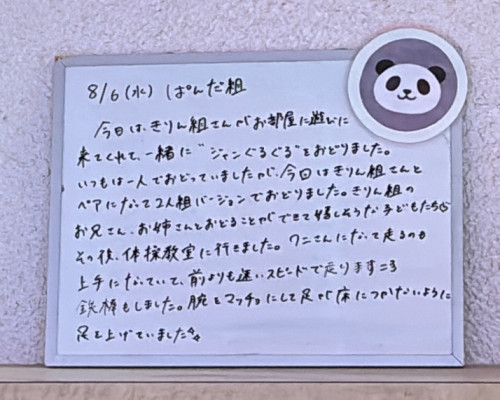 8/6(水) ぱんだ組
今日は、きりん組さんがお部屋に遊びに
来てくれて、一緒に"ジャンぐるぐる"をおどりました。
いつもは一人でおどっていましたが、今日はきりん組さんと
ペアになって2人組バージョンでおどりました。きりん組の
お兄さん、お姉さんとおどることができて嬉しそうな子どもたち
その後、体操教室に行きました。ワニさんになって走るのが
上手になっていて、前よりも速いスピードで走ります
鉄棒もしました。腕をマッチョにして足が床につかないように
足を上げていました